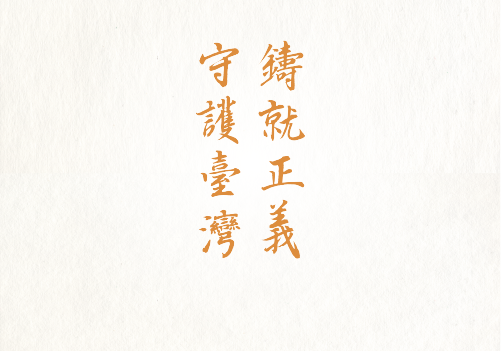 鑄就正義
守護臺灣